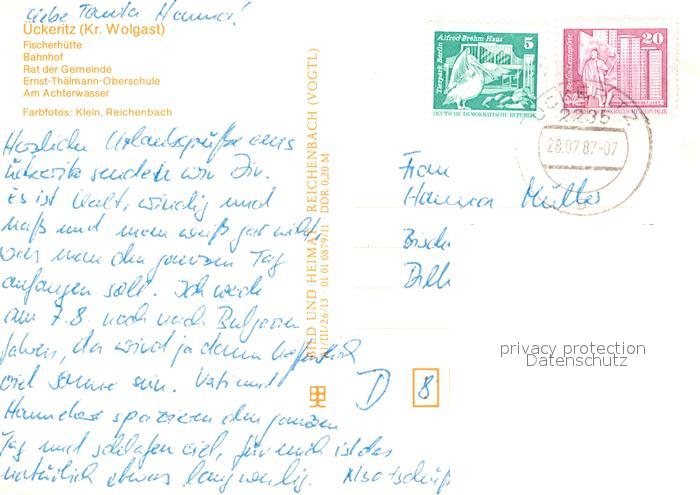 Liebe Tante Hanna!
Ückeritz (Kr. Wolgast)
Fischerhütte
Bahnhof
Rat der Gemeinde
Ernst-Thälmann-Oberschule
Am Achterwasser
Farbfotos: Klein, Reichenbach
Herzliche Urlaubsgrüße aus
Ückeritz senden wir Dir.
Es ist kalt, windig und
naß und man weiß gar nicht,
was man den ganzen Tag
anfangen soll. Ich werde
am 7.8. noch nach Bulgarien
fahren, da wird ja dann hoffentlich
viel Sonne sein. Vati und
spazieren den ganzen
Tag und schlafen viel, für mich ist das
natürlich etwas langweilig. Also tschüß
BILD UND HEIMAT REICHENBACH (VOGTL)
V/III/26/13 01 01 0879/11 DDR 0,20 M
Tierpark Berlin
Alfred-Brehm-Haus
5
DEUTSCHE DEMOKRATISCHE REPUBLIK
Berlin-Leninplatz
20
28.07.87-07
Frau
Hanna Müller
D
8
privacy protection
Datenschutz